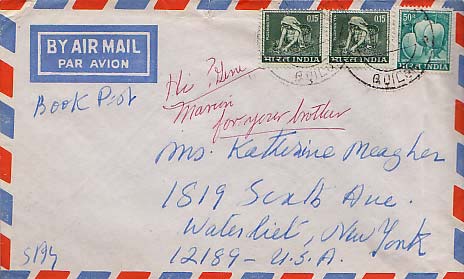 BY AIR MAIL
PAR AVION
0.15
0.15
50
भारत INDIA
भारत INDIA
भारत INDIA
QUILO
QUILO
Book Post
Hi Gene
Marvin
for your brother
Ms. Katherine Meagher
1819 Sixth Ave.
Watervliet, New York
12189 - U.S.A.